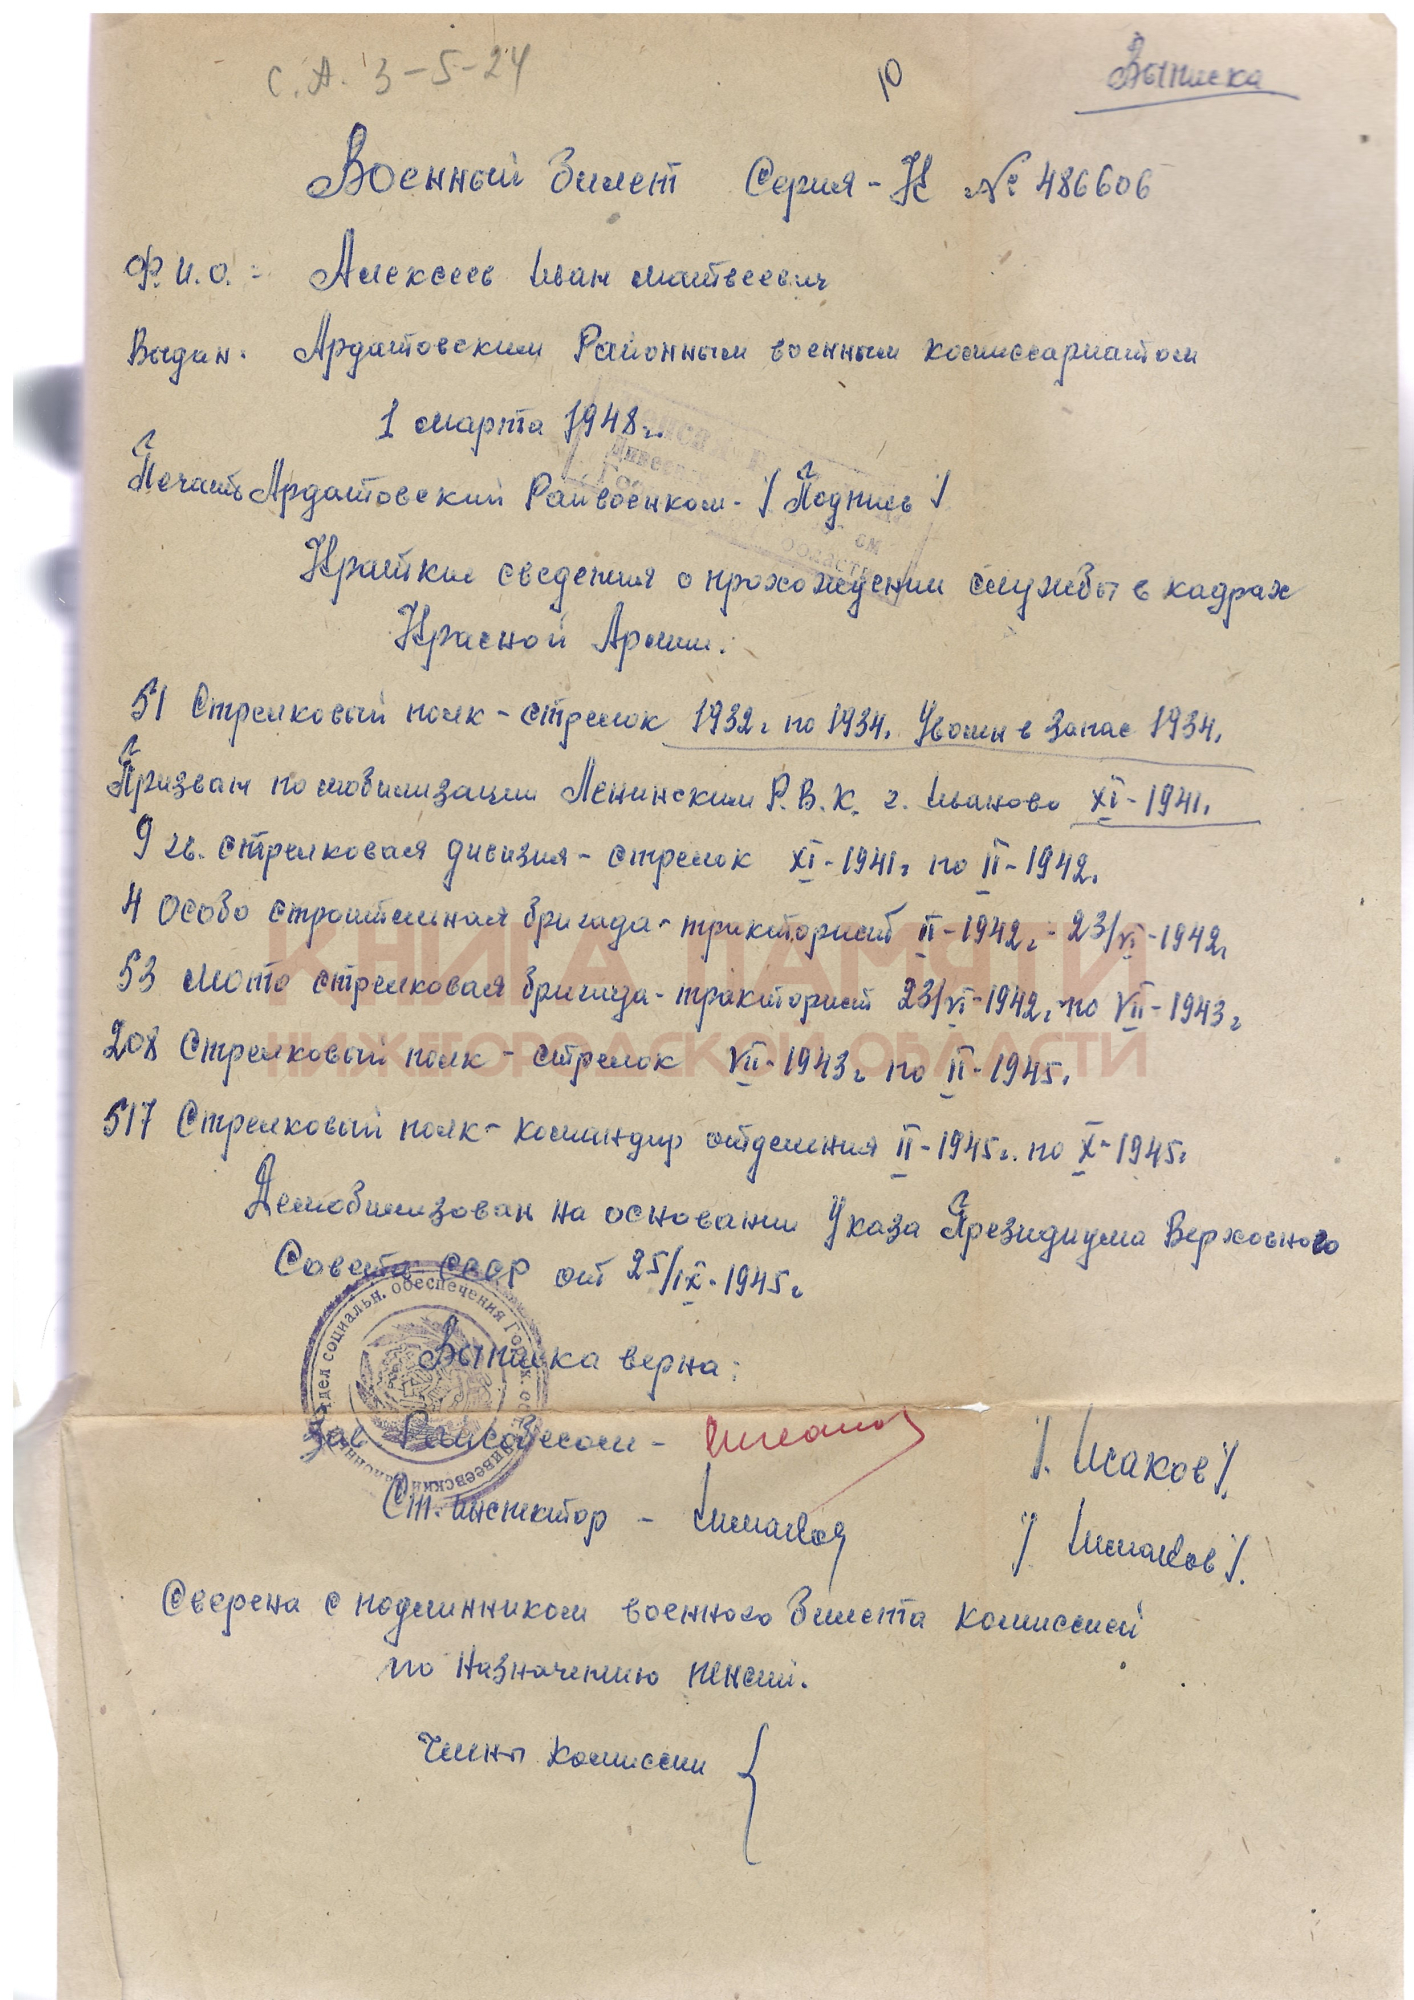 С. А. 3-5-24
10
Выписка
Военный билет Серия - К № 486606
Ф.И.О. - Алексеев Иван Матвеевич
Выдан. Ардатовским Районным военным комиссариатом
1 марта 1948 г.
Печать Ардатовский Райвоенком - / Подпись /
Краткие сведения о прохождении службы в кадрах
Красной Армии.
51 Стрелковый полк - стрелок 1932 г. по 1934. Уволен в запас 1934.
Призван по мобилизации Ленинским Р.В.К. г. Иваново XI-1941.
9 гв. стрелковая дивизия - стрелок XI-1941 г. по II-1942.
4 Особо строительная бригада - тракторист II-1942 г. - 23/VI-1942 г.
53 Мото стрелковая бригада - тракторист 23/VI-1942 г. по VII-1943 г.
208 Стрелковый полк - стрелок VII-1943 г. по II-1945.
517 Стрелковый полк - командир отделения II-1945 г. по X-1945 г.
КНИГА ПАМЯТИ
НИЖЕГОРОДСКОЙ ОБЛАСТИ
Демобилизован на основании Указа Президиума Верховного
Совета СССР от 25/IX-1945 г.
Выписка верна:
Зав Райсобесом - / Исаков /.
Ст. инспектор - / Ишалов /.
Сверена с подлинником военного билета комиссией
по назначению пенсий.
Члены комиссии {
отдел социальн. обеспечения